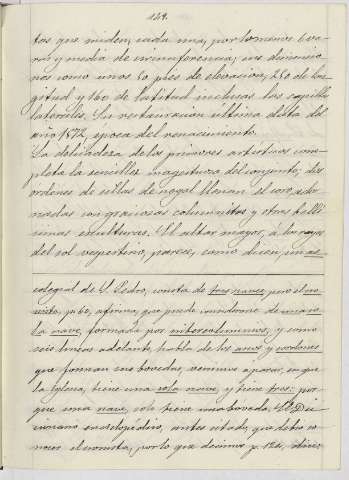 149.
tos que miden, cada una, por lo menos 6 va-
ras y media de circunferencia, sus dimensio-
nes como unos 50 pies de elevacion, 250 de lon-
gitud y 160 de latitud inclusas las capillas
laterales. Su restauracion última data del
año 1572, época del renacimiento.
La delicadeza de los primores artísticos com-
pleta la sencillez magestuosa del conjunto; dos
ordenes de sillas de nogal llenan el coro, ador-
nadas con graciosas columnitas y otras belli-
simas esculturas. El altar mayor, á los rayos
del sol vespertino, parece, como dicen, un as-
colegial de S. Pedro, consta de tres naves, pero el cro-
nista, p. 60, afirma, que puede considerarse de una so-
la nave, formada por intercolumnios, y como
seis lineas adelante, habla de los arcos y cordones
que forman sus bovedas, venimos a parar, en que
la Iglesia, tiene una sola nave, y tiene tres: por-
que una nave, solo tiene una boveda. El Dic-
cionario enciclopedico, antes citado, que debió co-
nocer el cronista, por lo que decimos p. 124, dice: